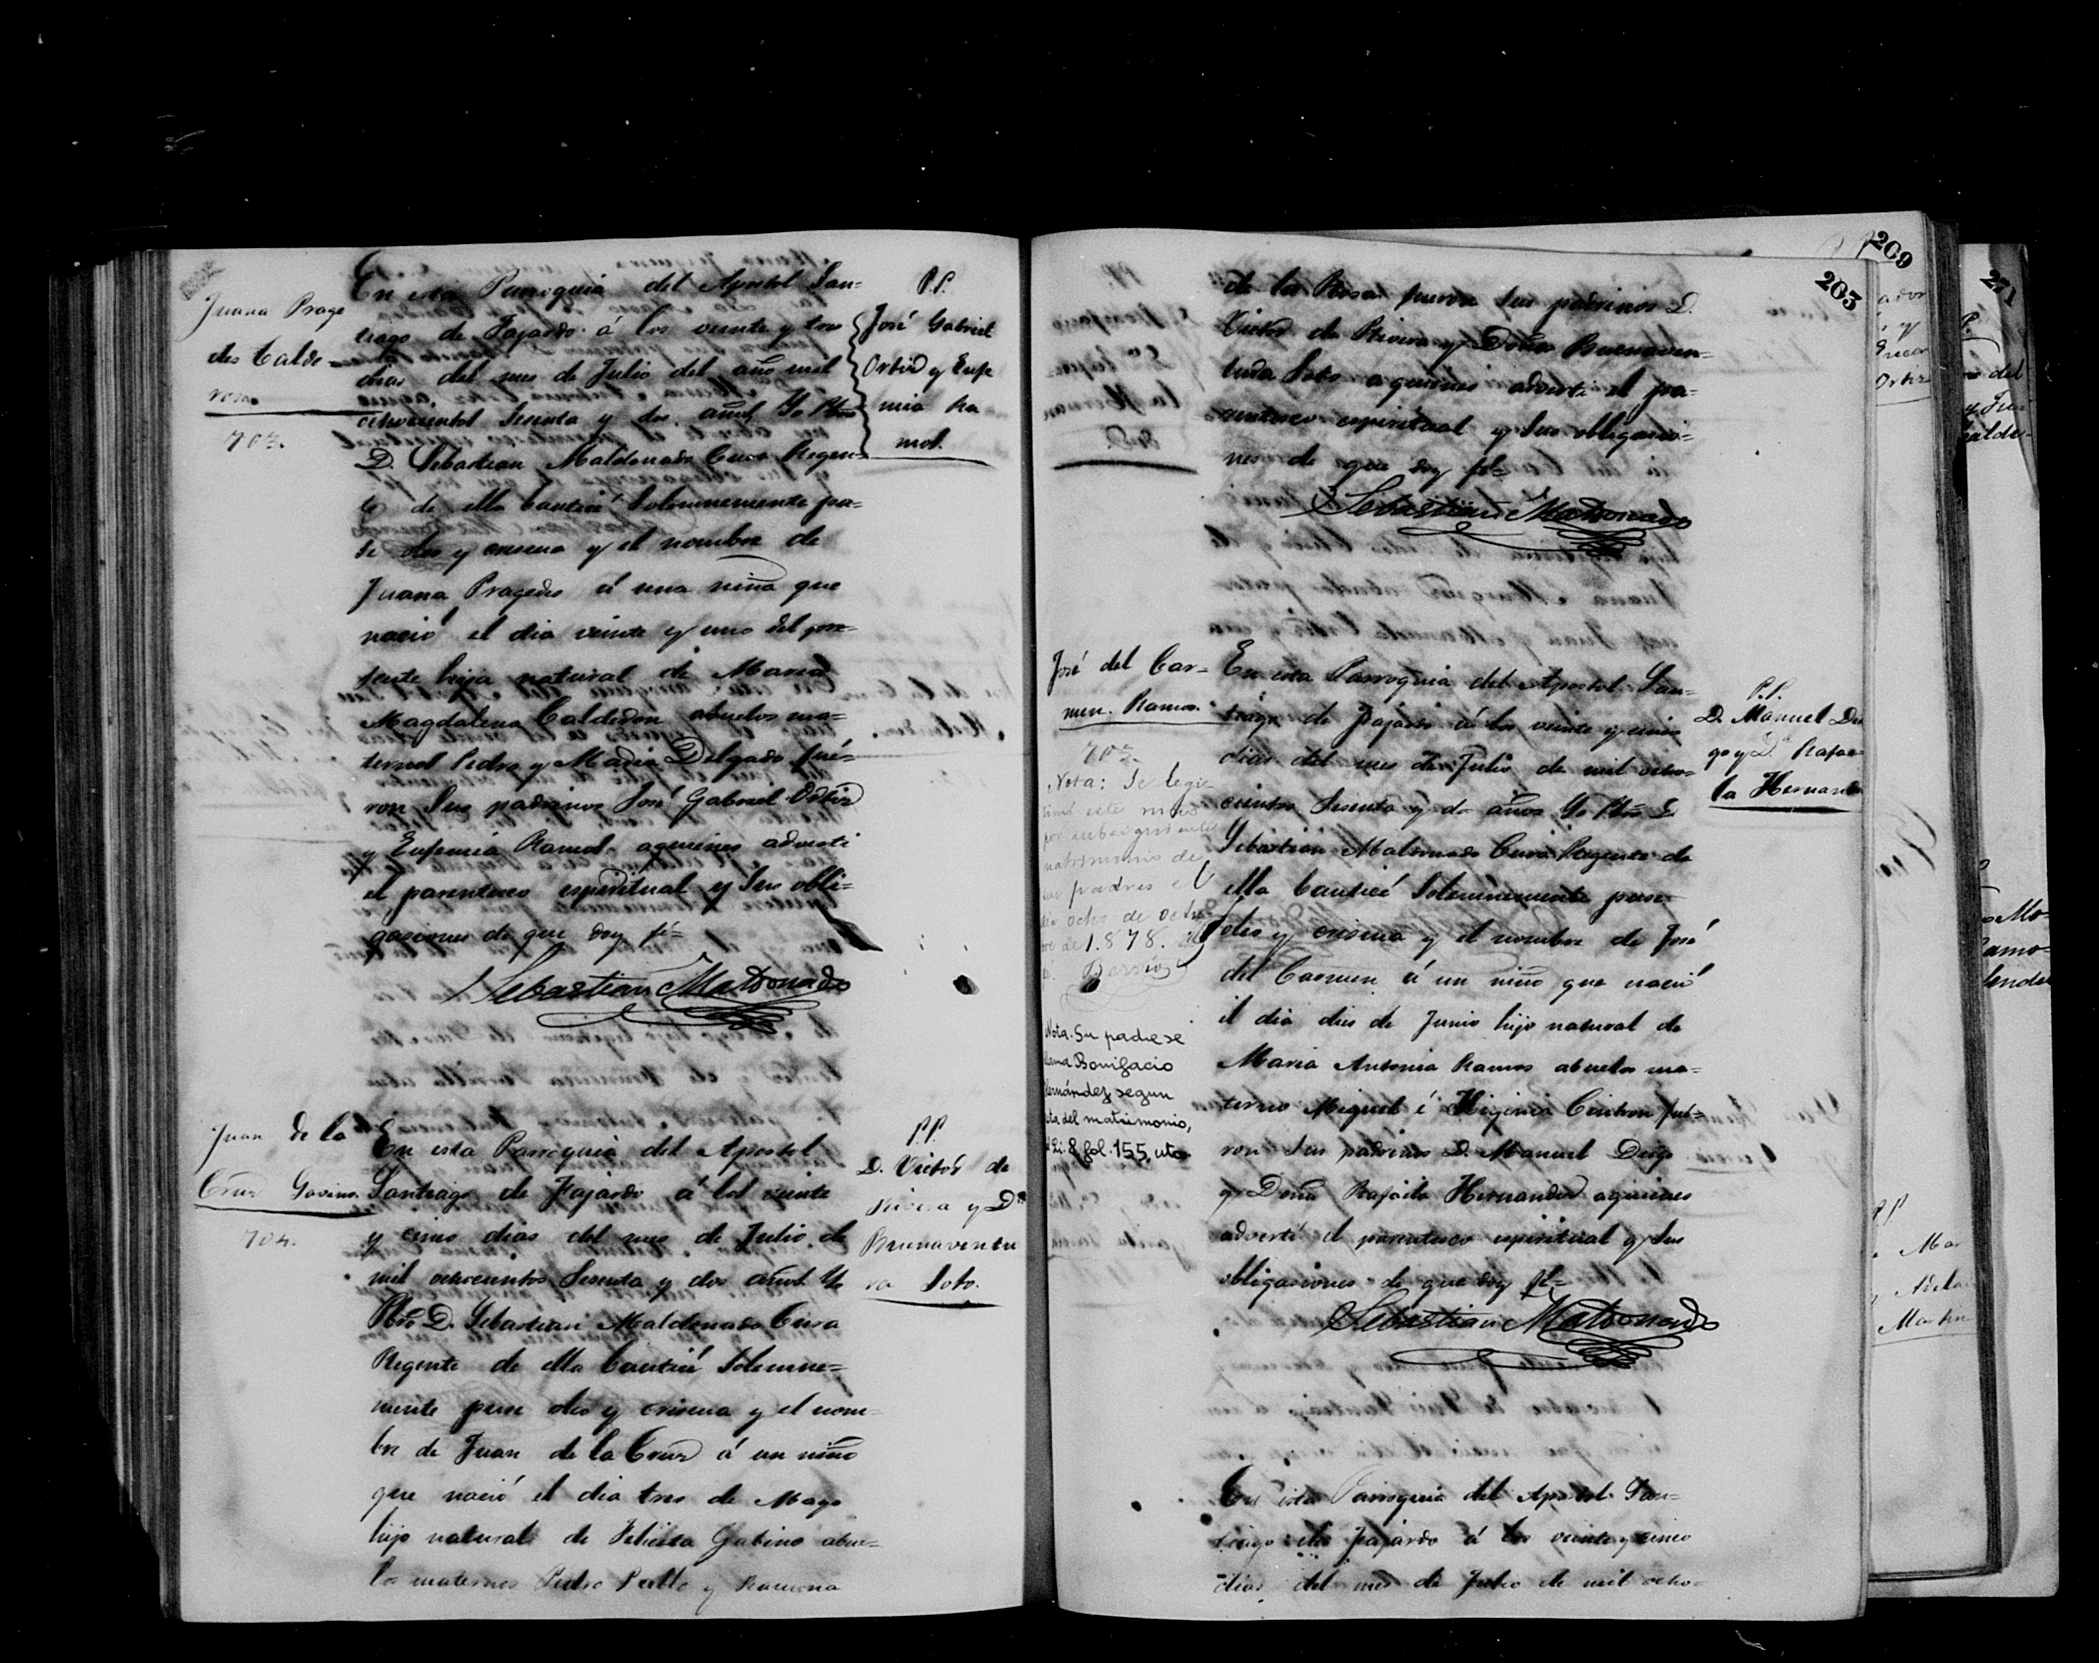 Juana Prage
des Calde=
ron.
703.
En esta Parroquia del Apostol San=
tiago de Fajardo á los veinte y tres
dias del mes de Julio del año mil
ochocientos Sesenta y dos años Yo Pbro
D. Sebastian Maldonado Cura Regen=
te de ella bauticé Solemnemente pu=
se oleo y crisma y el nombre de
Juana Pragedes á una niña que
nació el dia veinte y uno del pre=
sente hija natural de Maria
Magdalena Calderon abuelos ma=
ternos Pedro y Maria Delgado fué=
ron Sus padrinos José Gabriel Ortiz
y Eufemia Ramos aquienes adverti
el parentesco espiritual y Sus obli=
gaciones de que doy fé=
Sebastian Maldonado
P.P.
José Gabriel
Ortiz y Eufe
mia Ra
mos.
Juan de la
Cruz Gavino.
704.
En esta Parroquia del Apostol
Santiago de Fajardo á los veinte
y cinco dias del mes de Julio de
mil ochocientos Sesenta y dos años Yo
Pbro D. Sebastian Maldonado Cura
Regente de ella bauticé Solemne=
mente puse oleo y crisma y el nom=
bre de Juan de la Cruz á un niño
que nació el dia tres de Mayo
hijo natural de Felicita Gabino abue=
los maternos Pedro y Ramona
P.P.
D. Victor de
Rivera y Dª
Buenaventu
ra Soto.
209
203
271
de la Rosa fueron Sus padrinos D.
Victor de Rivera y Doña Buenaven=
tura Soto aquienes adverti el pa=
rentesco espiritual y Sus obligacio=
nes de que doy fé=
Sebastian Maldonado
José del Car=
men. Ramos.
705.
Nota: Se legi
timó este
por subsiguiente
matrimonio de
sus padres el
dia ocho de octu
bre de 1.878.
Berrios
Nota. Su padre se
llama Bonifacio
Hernández segun
acta del matrimonio,
Li. 8 fol. 155, vto
En esta Parroquia del Apostol San=
tiago de Fajardo á los veinte y cinco
dias del mes de Julio de mil ocho=
cientos Sesenta y dos años Yo Pbro D.
Sebastian Maldonado Cura Regente de
ella bauticé Solemnemente puse
oleo y crisma y el nombre de José
del Carmen á un niño que nació
el dia dies de Junio hijo natural de
Maria Antonia Ramos abuelos ma=
ternos Miguel é Higinia Cintron fue=
ron Sus padrinos D. Manuel Diego
y Doña Rafaela Hernandez aquienes
advertí el parentesco espiritual y Sus
obligaciones de que doy fé=
Sebastian Maldonado
P.P.
D. Manuel Die
go y Dª Rafae
la Hernande
En esta Parroquia del Apostol San=
tiago de Fajardo á los veinte y cinco
dias del mes de Julio de mil ocho=